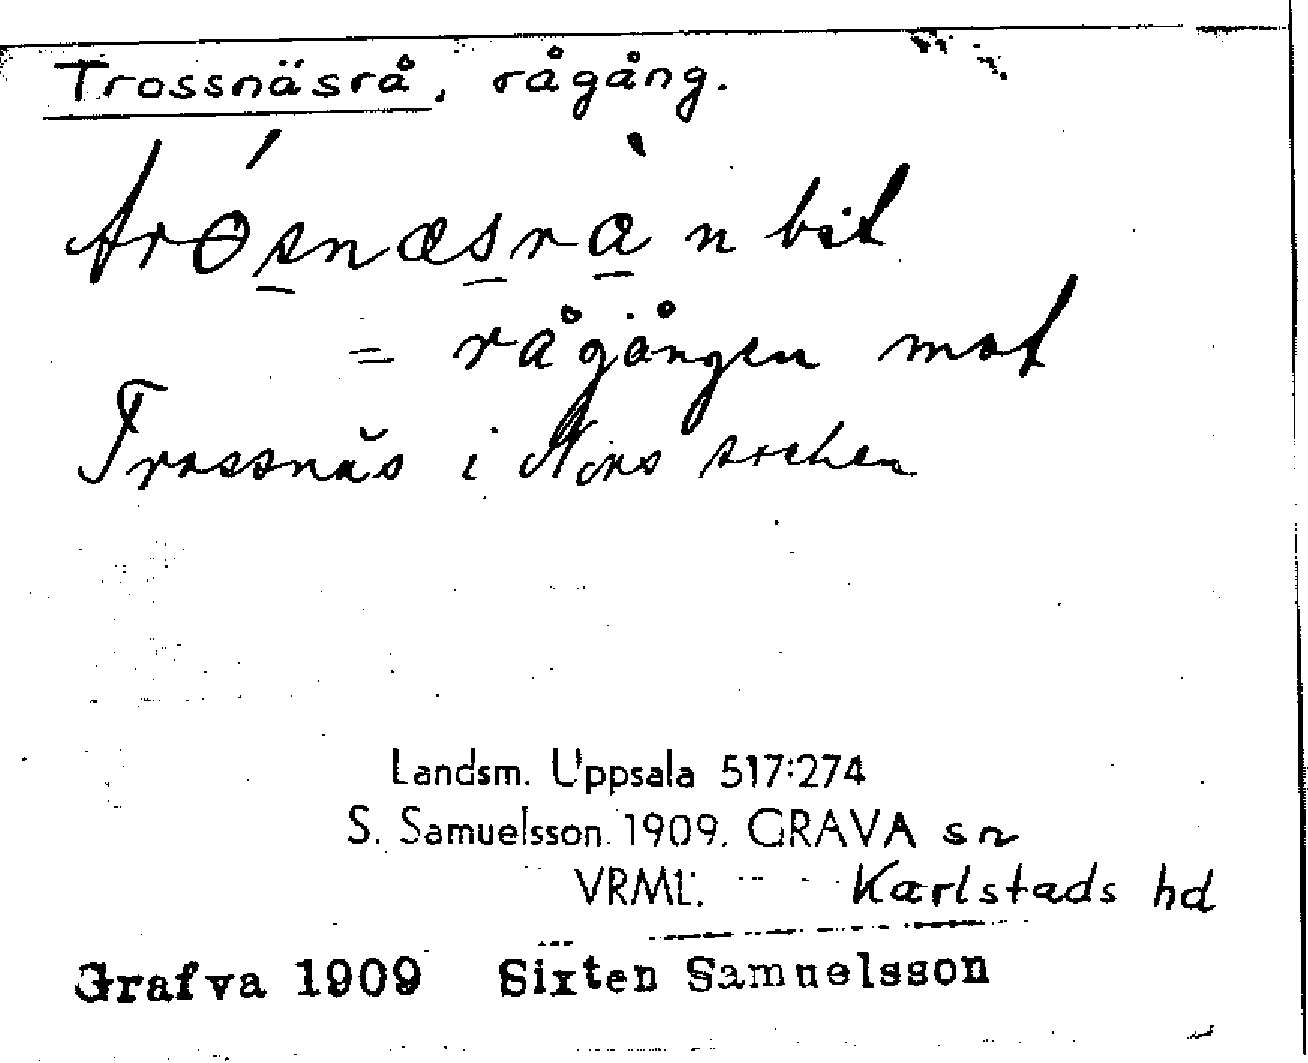 Trossnäsrå, rågång.
= rågången mot
Trossnäs i Nors socken
Landsm. Uppsala 517:274
S. Samuelsson. 1909. GRAVA sn
VRML. Karlstads hd
Grafva 1909 Sixten Samuelsson